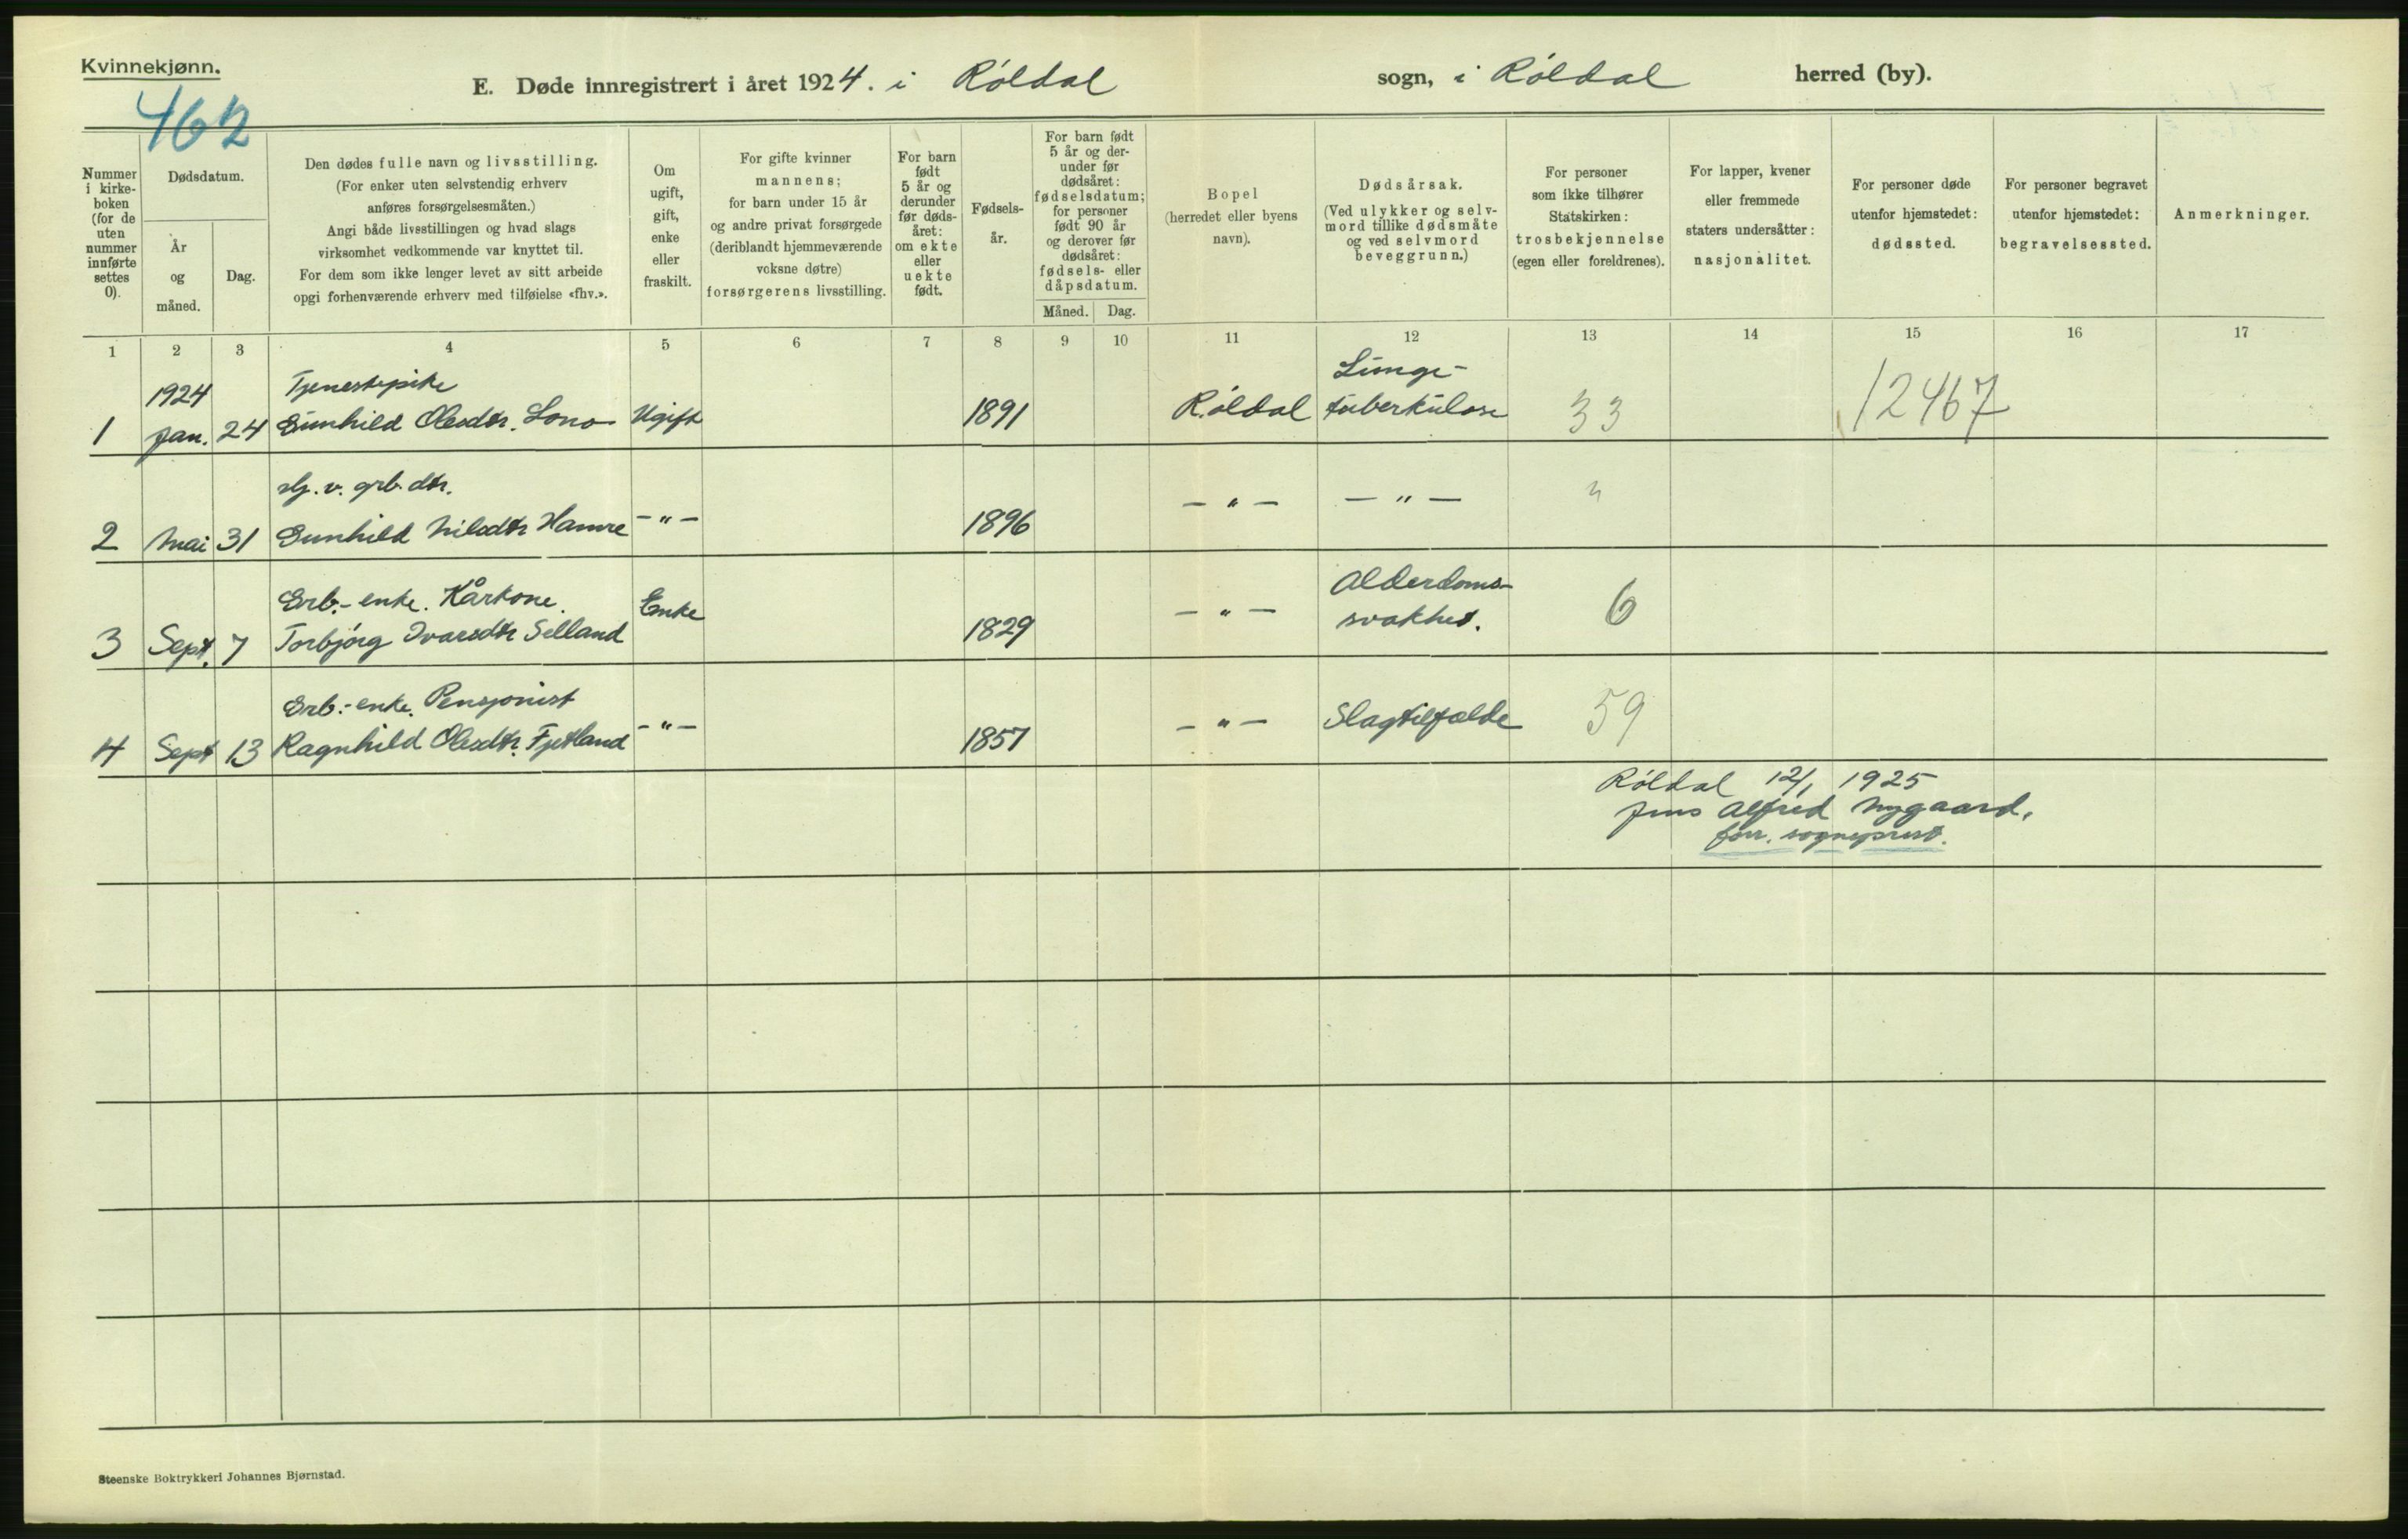 Kvinnekjønn.
462
E. Døde innregistrert i året 1924. i Röldal sogn, i Röldal herred (by).
Nummer i kirke-boken (for de uten nummer innførte settes 0).
Dødsdatum.
År og måned.
Dag.
Den dødes fulle navn og livsstilling.
(For enker uten selvstendig erhverv
anføres forsørgelsesmåten.)
Angi både livsstillingen og hvad slags
virksomhet vedkommende var knyttet til.
For dem som ikke lenger levet av sitt arbeide
opgi forhenværende erhverv med tilføielse «fhv.».
Om
ugift,
gift,
enke
eller
fraskilt.
For gifte kvinner
mannens;
for barn under 15 år
og andre privat forsørgede
(deriblandt hjemmeværende
voksne døtre)
forsørgerens livsstilling.
For barn
født
5 år og
derunder
før døds-
året:
om ekte
eller
uekte
født.
Fødsels-
år.
For barn født
5 år og der-
under før
dødsåret:
fødselsdatum;
for personer
født 90 år
og derover før
dødsåret:
fødsels- eller
dåpsdatum.
Måned. Dag.
Bopel
(herredet eller byens
navn).
Dødsårsak.
(Ved ulykker og selv-
mord tillike dødsmåte
og ved selvmord
beveggrunn.)
For personer
som ikke tilhører
Statskirken:
trosbekjennelse
(egen eller foreldrenes).
For lapper, kvener
eller fremmede
staters undersåtter:
nasjonalitet.
For personer døde
utenfor hjemstedet:
dødssted.
For personer begravet
utenfor hjemstedet:
begravelsessted.
Anmerkninger.
1 2 3 4 5 6 7 8 9 10 11 12 13 14 15 16 17
1924 Tjenestepike Lunge-
1 Jan. 24 Gunhild Olesdtr. Lono Ugift 1891 Röldal tuberkulose 33 12467
v. grb. dtr.
2 Mai 31 Gunhild Nilsdtr Hamre -"- 1896 -"- -"- "
Grb.-enke. Kårkone. Alderdoms-
3 Sept. 7 Torbjörg Ivarsdtr Selland Enke 1829 -"- svakhet. 6
Grb.-enke. Pensjonist
4 Sept 13 Ragnhild Olesdtr. Fjetland -"- 1857 -"- Slagtilfælde 59
Röldal 12/1 1925
Jens Alfred Nygaard,
forr. sogneprest.
Steenske Boktrykkeri Johannes Bjørnstad.